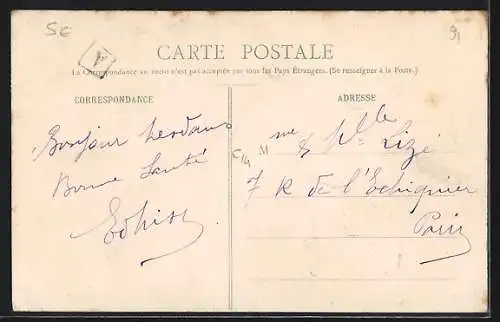 5E
91
A
CARTE POSTALE
La Correspondance au recto n'est pas acceptée par tous les Pays Étrangers. (Se renseigner à la Poste.)
CORRESPONDANCE
Bonjour
Bonne Santé
ADRESSE
M me & Melle Lizé
7 R de l'Echiquier
Paris